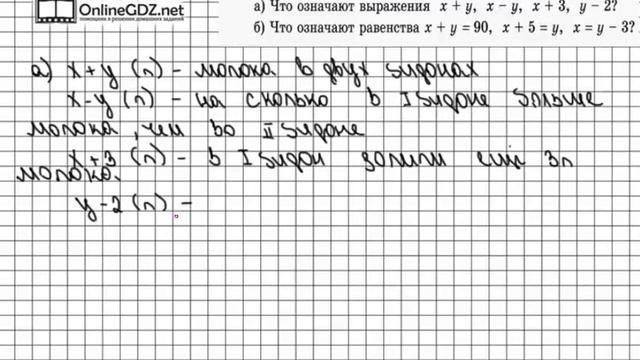 OnlineGDZ.net
помощник в решении домашних заданий
а) Что означают выражения x + y, x − y, x + 3, y − 2?
б) Что означают равенства x + y = 90, x + 5 = y, x = y − 3?
а) x + y (л) – молока в двух бидонах
x – y (л) – на сколько в I бидоне больше
молока, чем во II бидоне
x + 3 (л) – в I бидон залили ещё 3л
молока.
y – 2 (л) –